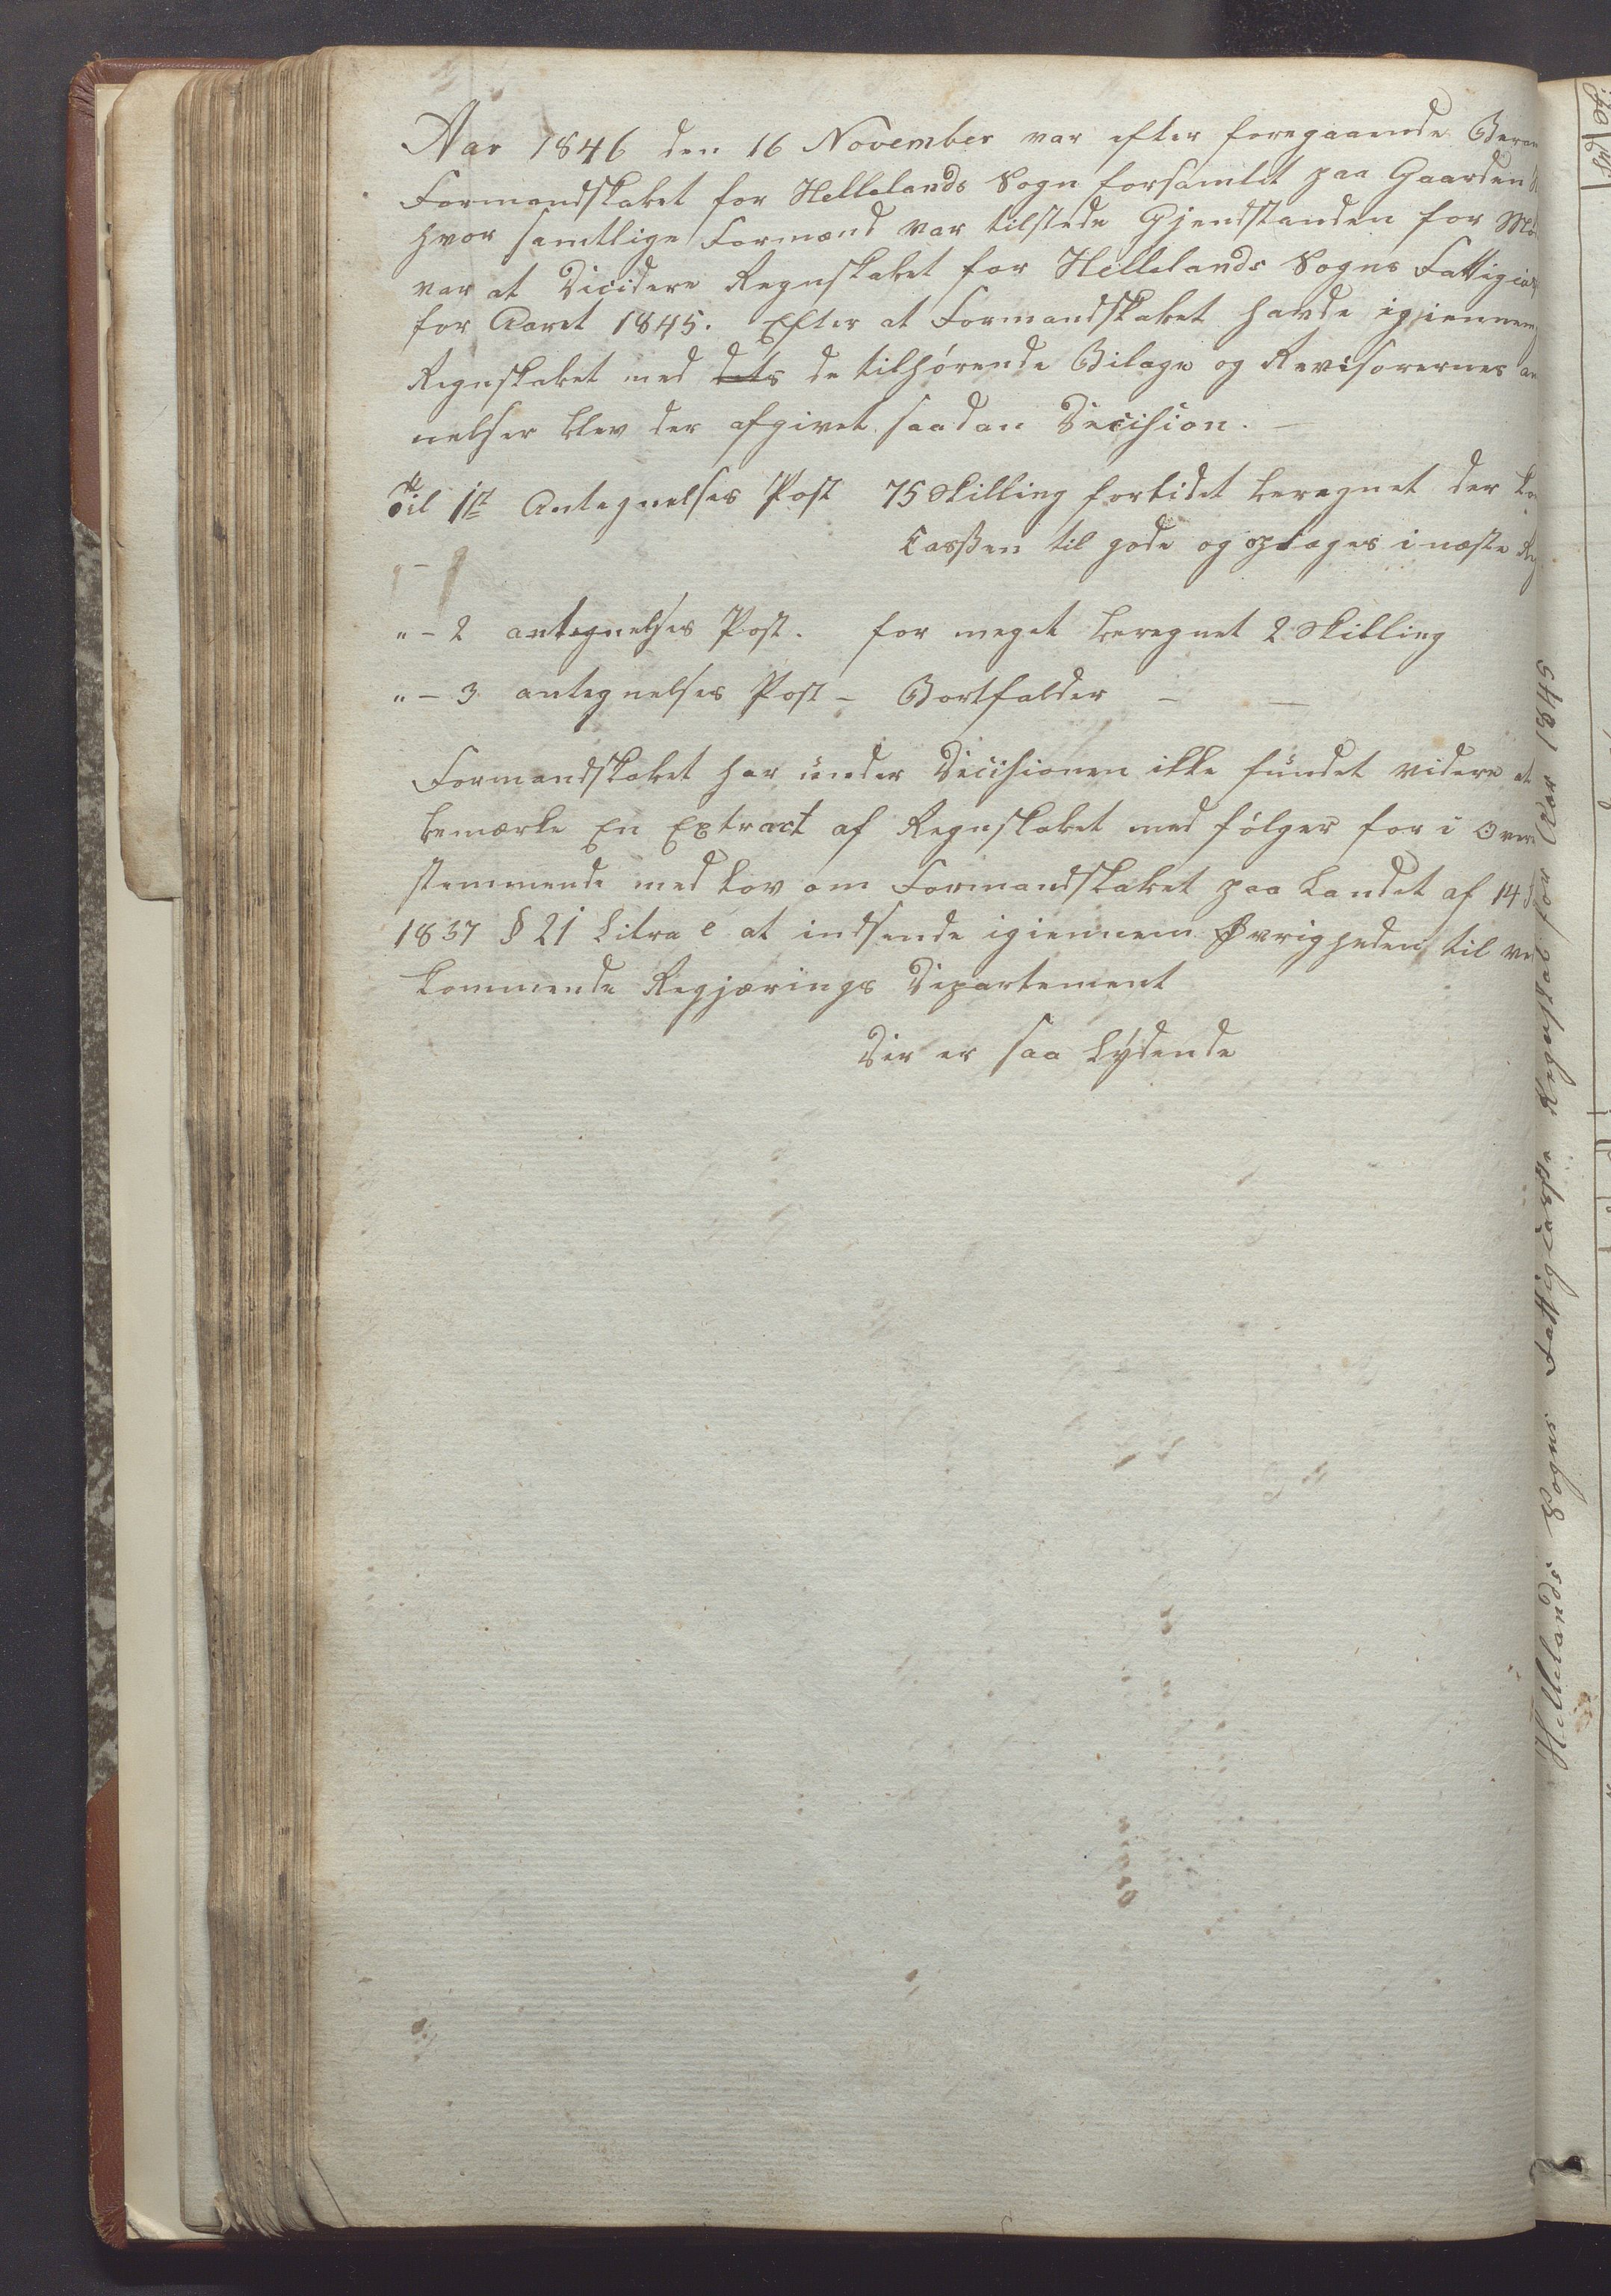 Aar 1846 den 16 November var efter foregaaende Beram
Formandskabet for Hellelands Sogn forsamlet paa Gaarden
hvor samtlige Formænd var tilstede Gjendstanden for Mø
var at Dicidere Regnskabet for Hellelands Sogns Fattigcas
for Aaret 1845. Efter at Formandskabet havde igiennem
Regnskabet med dets de tilhørende Bilage og Revisorernes an
nelser blev der afgivet saadan Decision.
Til 1st Antegnelses Post 75 Skilling forlidet beregnet der ko
Cassen til gode og optages i næste Reg
" - 2 antegnelses Post. for meget beregnet 2 Skilling
" - 3 antegnelses Post - Bortfalder -
Formandskabet har under Dicisionen ikke fundet videre at
bemærke En Extract af Regnskabet med følger for i Over
stemmende med Lov om Formandskabet paa Landet af 14 J
1837 § 21 Litra e at indsende igiennem Øvrigheden til ved
kommende Regjærings Departement
Der er saa Lydende
Hellelands Sogns Fattigcasse Regnskab for Aar 1845